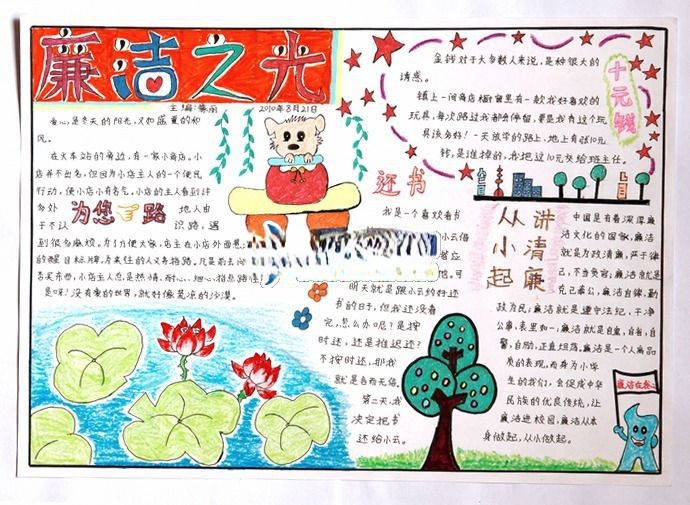 廉洁之光
主编:紫涵
2010年8月21日
爱心,是冬天的阳光,又如盛夏的和
风。
在火车站的旁边,有一家小商店。小店
并不出名,但因为小店主人的一个便民
行动,使小店小有名气。小店的主人看到
务处
为您👉路
地人由
于不认
识路,遇
到很多麻烦。为了方便大家,店主在小店外面
的醒目标牌,为来往的人义务指路。凡是前去问
着买东西,小店主人总是热情、耐心、细心,指点路
是呀!没有爱的世界,就好像荒凉的沙漠。
十元钱
金钱对于大多数人来说,是种很大的
诱惑。
镇上一间商店橱窗里有一款我好喜欢的
玩具,每次路过我都会停留,要是我有这个玩
具该多好!一天放学的路上,地上有张10元
钱,是谁掉的,我把这10元交给班主任。
还书
我是一个喜欢看书
小云借
他,可
明天就是跟小云约好还
书的日子,但我还没看
完,怎么办呢?是按
时还,还是推迟还?
不按时还,那我
就是言而无信,
第二天,我
决定把书
还给小云。
讲清廉
从小起
中国是有着深厚廉
洁文化的国家,廉洁
就是为政清廉,严于律
己,不贪奕容;廉洁就是
克己奉公,廉洁自律,勤
政为民;廉洁就是遵守法纪,干净
公事,表里如一;廉洁就是自重,自省,自
警,自励,正直坦荡。廉洁是一个人高品
质的表现,而身为小学
生的我们,会促成中华
民族的优良传统,让
廉洁进校园,廉洁从本
身做起,从小做起。
廉洁在我心